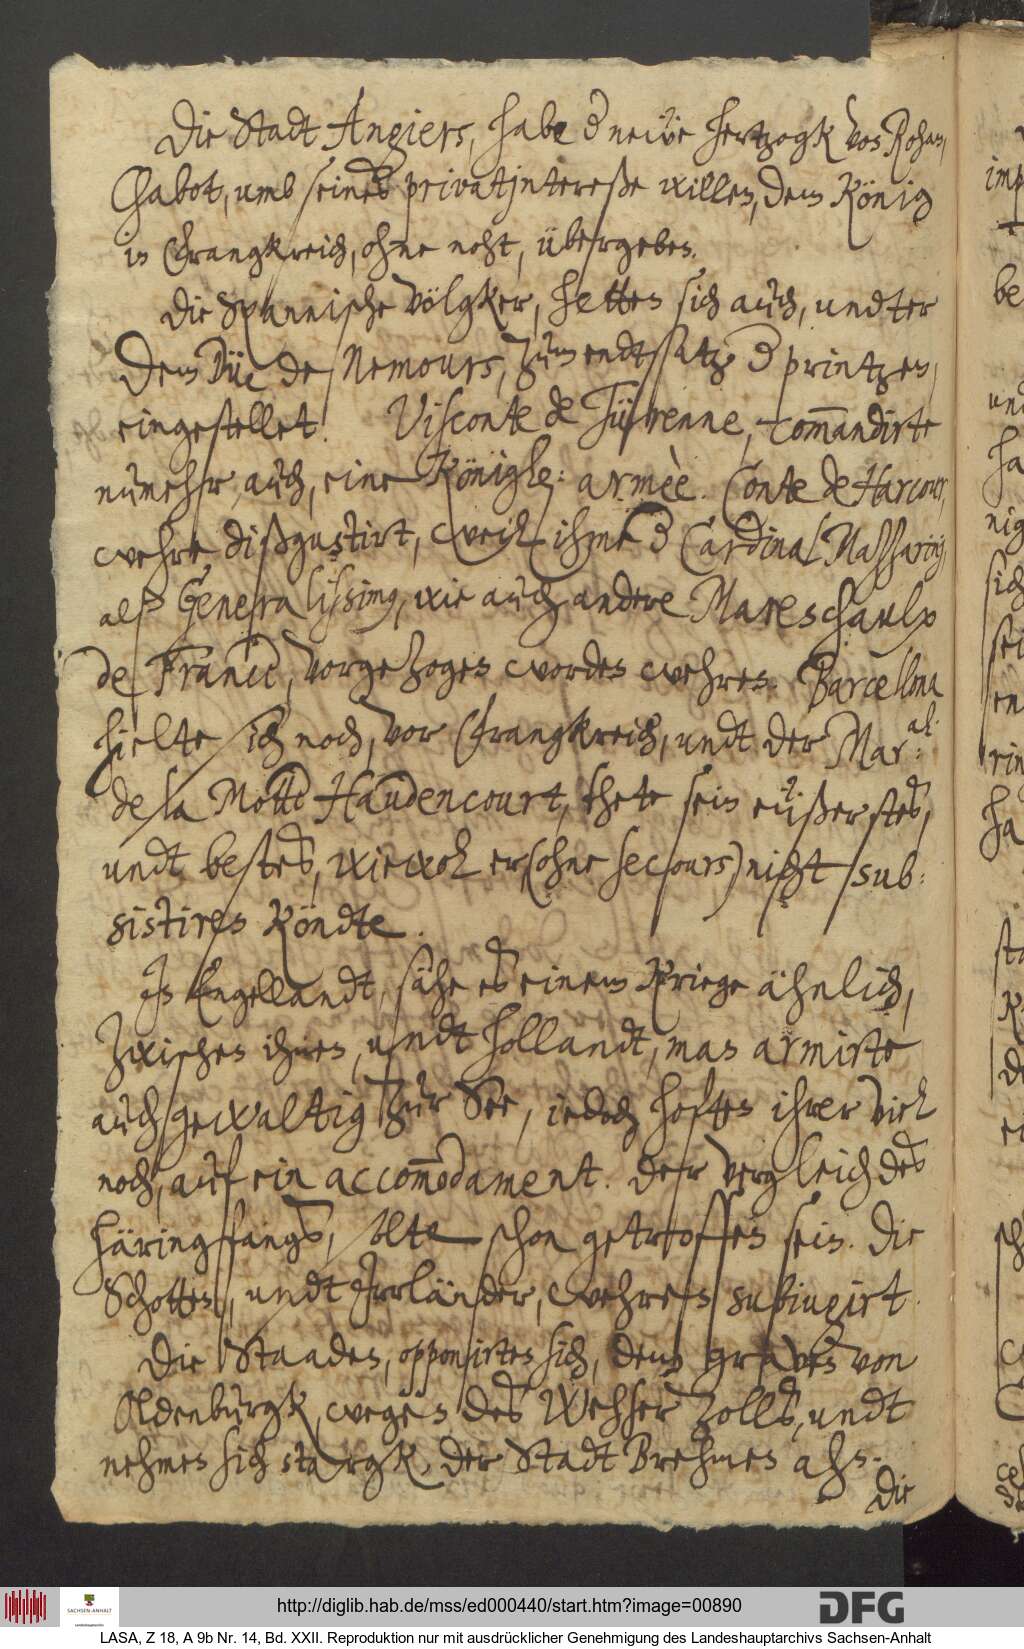 Die Stadt Angiers, habe d neüe Hertzogk von Rohan,
Chabot, umb seines privatjntereße willen, dem König
in Franckreich, ohne noht, übergeben.
Die Spannische Völgker, hetten sich auch, undter
dem Düc de Nemours, zum endtsatz d printzen,
eingestellet. Visconte de Türenne, com̄andirte
nunmehr, auch, eine Königle: armèe. Conte de Harcourt,
wehre dißgustirt, weil ihme d Cardinal Massarinj,
alß Generalissimo, wie auch andere Mareschaulx
de France, vorgezogen worden wehren. Barcellona
hielte sich noch, vor Franckreich, undt der Mar:al:
de la Motte Haudencourt, thete sein eüßerstes,
undt bestes, wiewol er, (ohne secours) nicht sub:
sistiren köndte.
In Engellandt, sähe es einem Kriege ähnlich,
zwischen ihnen, undt Hollandt, man armirte
auch gewaltig zur See, iedoch hoften ihrer viel
noch, auf ein accom̄odament. Der vergleich des
häringfangs, solte schon getroffen sein. Die
Schotten, undt Irrländer, wehren subiugirt.
Die Staaden, opponirten sich, dem graven von
Oldenburgk, wegen des Wehser Zolls, undt
nehmen sich stargk, der Stadt Brehmen ahn.
Die
http://diglib.hab.de/mss/ed000440/start.htm?image=00890
SACHSEN-ANHALT
DFG
LASA, Z 18, A 9b Nr. 14, Bd. XXII. Reproduktion nur mit ausdrücklicher Genehmigung des Landeshauptarchivs Sachsen-Anhalt